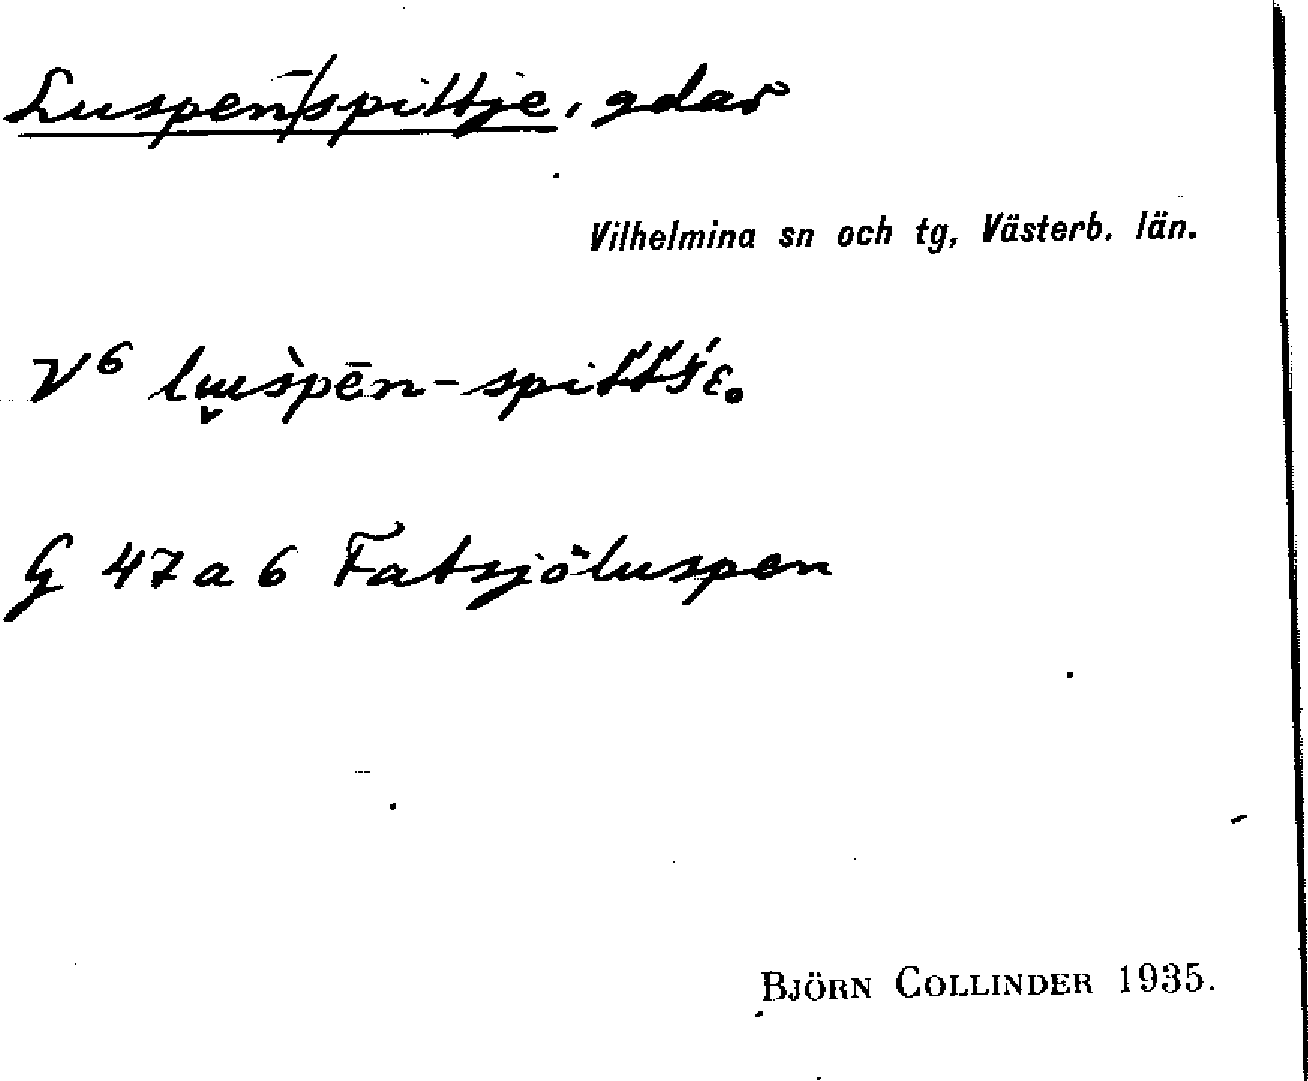 Luspen̄/spittje, gdar
Vilhelmina sn och tg, Västerb. län.
V⁶
G 47 a 6 Fatsjöluspen
BJÖRN COLLINDER 1935.